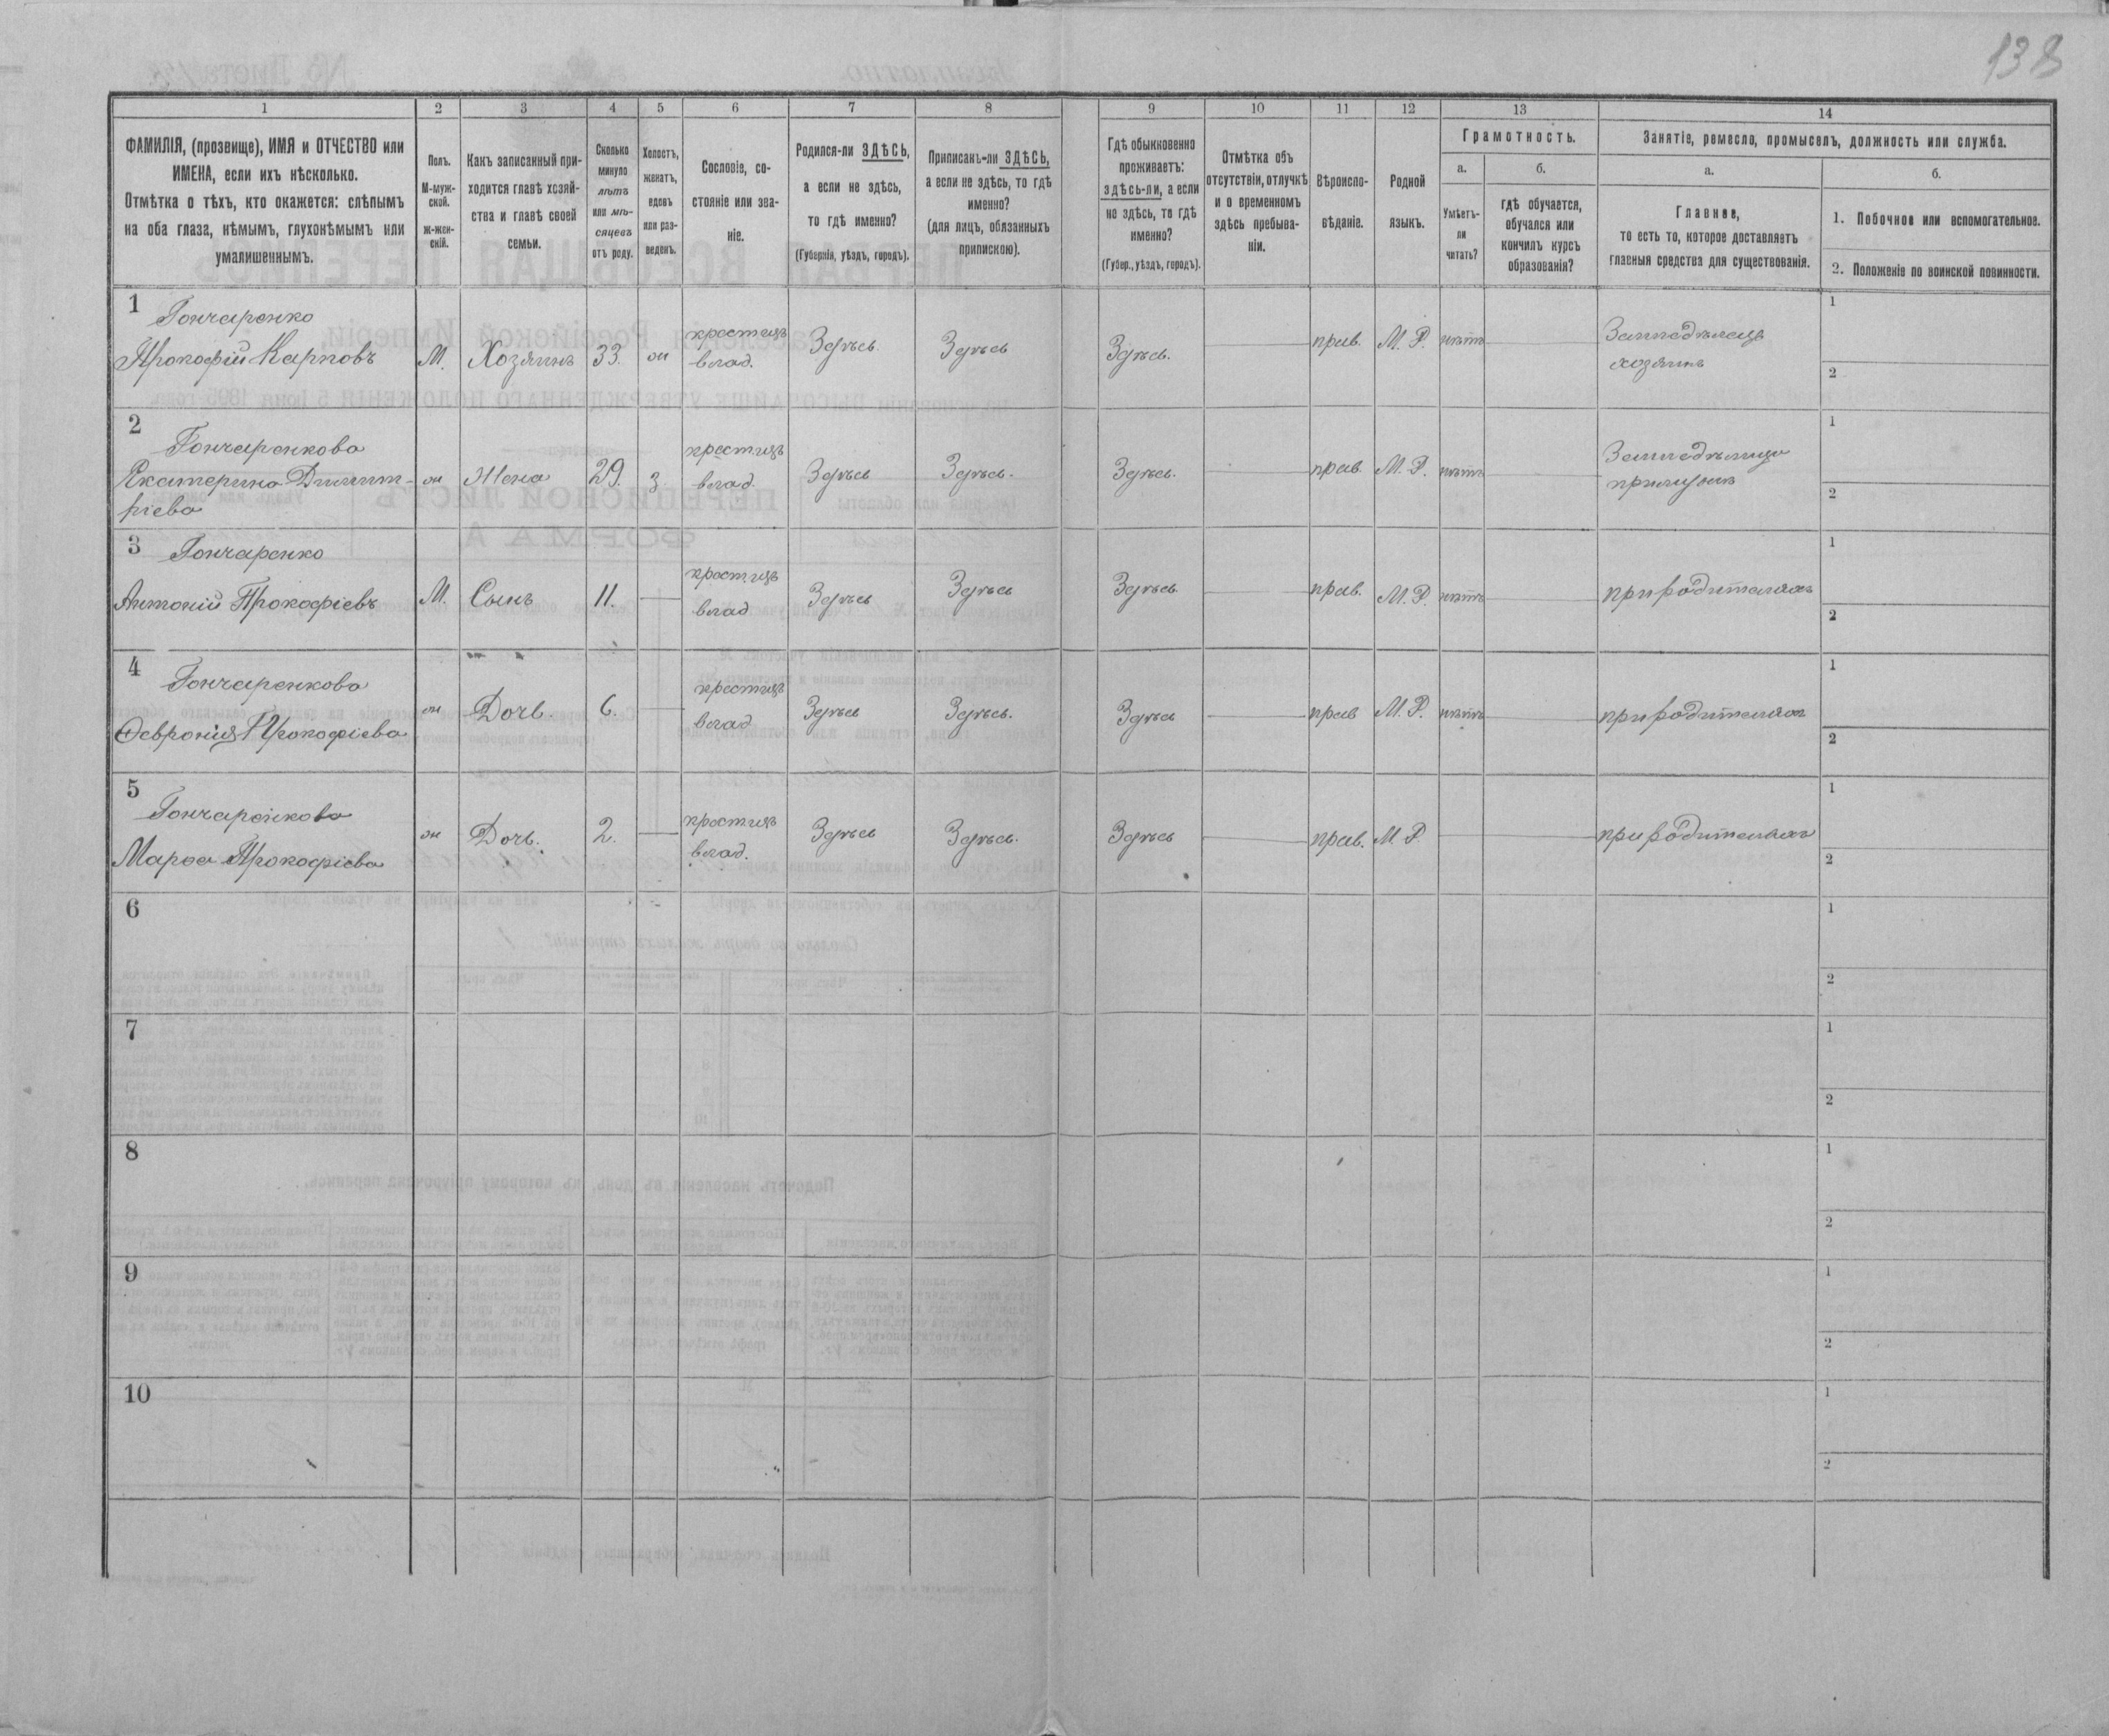 138
1 2 3 4 5 6 7 8 9 10 11 12 13 14
ФАМИЛІЯ, (прозвище), ИМЯ и ОТЧЕСТВО или
ИМЕНА, если ихъ нѣсколько.
Отмѣтка о тѣхъ, кто окажется: слѣпымъ
на оба глаза, нѣмымъ, глухонѣмымъ или
умалишеннымъ.
Полъ.
М-муж-
ской.
ж-жен-
скій.
Какъ записанный при-
ходится главѣ хозяй-
ства и главѣ своей
семьи.
Сколько
минуло
лѣтъ
или мѣ-
сяцевъ
отъ роду.
Холостъ,
женатъ,
вдовъ
или раз-
веденъ.
Сословіе, со-
стояніе или зва-
ніе.
Родился-ли ЗДѢСЬ,
а если не здѣсь,
то гдѣ именно?
(Губернія, уѣздъ, городъ).
Приписанъ-ли ЗДѢСЬ,
а если не здѣсь, то гдѣ
именно?
(для лицъ, обязанныхъ
припискою).
Гдѣ обыкновенно
проживаетъ:
здѣсь-ли, а если
не здѣсь, то гдѣ
именно?
(Губер., уѣздъ, городъ).
Отмѣтка объ
отсутствіи, отлучкѣ
и о временномъ
здѣсь пребыва-
ніи.
Вѣроиспо-
вѣданіе.
Родной
языкъ.
Грамотность.
а.
Умѣетъ-
ли
читать?
б.
гдѣ обучается,
обучался или
кончилъ курсъ
образованія?
Занятіе, ремесло, промыселъ, должность или служба.
а.
Главное,
то есть то, которое доставляетъ
главныя средства для существованія.
б.
1. Побочное или вспомогательное.
2. Положеніе по воинской повинности.
1
Гончаренко
Прокофій Карповъ М. Хозяинъ 33. крестьян влад. Здѣсь. Здѣсь Здѣсь. прав. М. Р. нѣтъ Земледѣлецъ
хозяинъ
1
2
2
Гончаренкова
Екатерина Димит-
ріева
Жена 29. з. влад. Здѣсь Здѣсь. Здѣсь. прав. М. Р. нѣтъ
1
2
3
Гончаренко
Антоній Прокофіевъ М. Сынъ 11. влад Здѣсь Здѣсь Здѣсь прав. М. Р. нѣтъ при родителяхъ
1
2
4
Гончаренкова
Февронія Прокофіева Дочь. 6. влад Здѣсь Здѣсь. Здѣсь прав М. Р. нѣтъ при родителяхъ
1
2
5
Гончаренкова
Прокофіева Дочь. 2. влад. Здѣсь Здѣсь. Здѣсь прав. М. Р. при родителяхъ
1
2
6
1
2
7
1
2
8
1
2
9
1
2
10
1
2